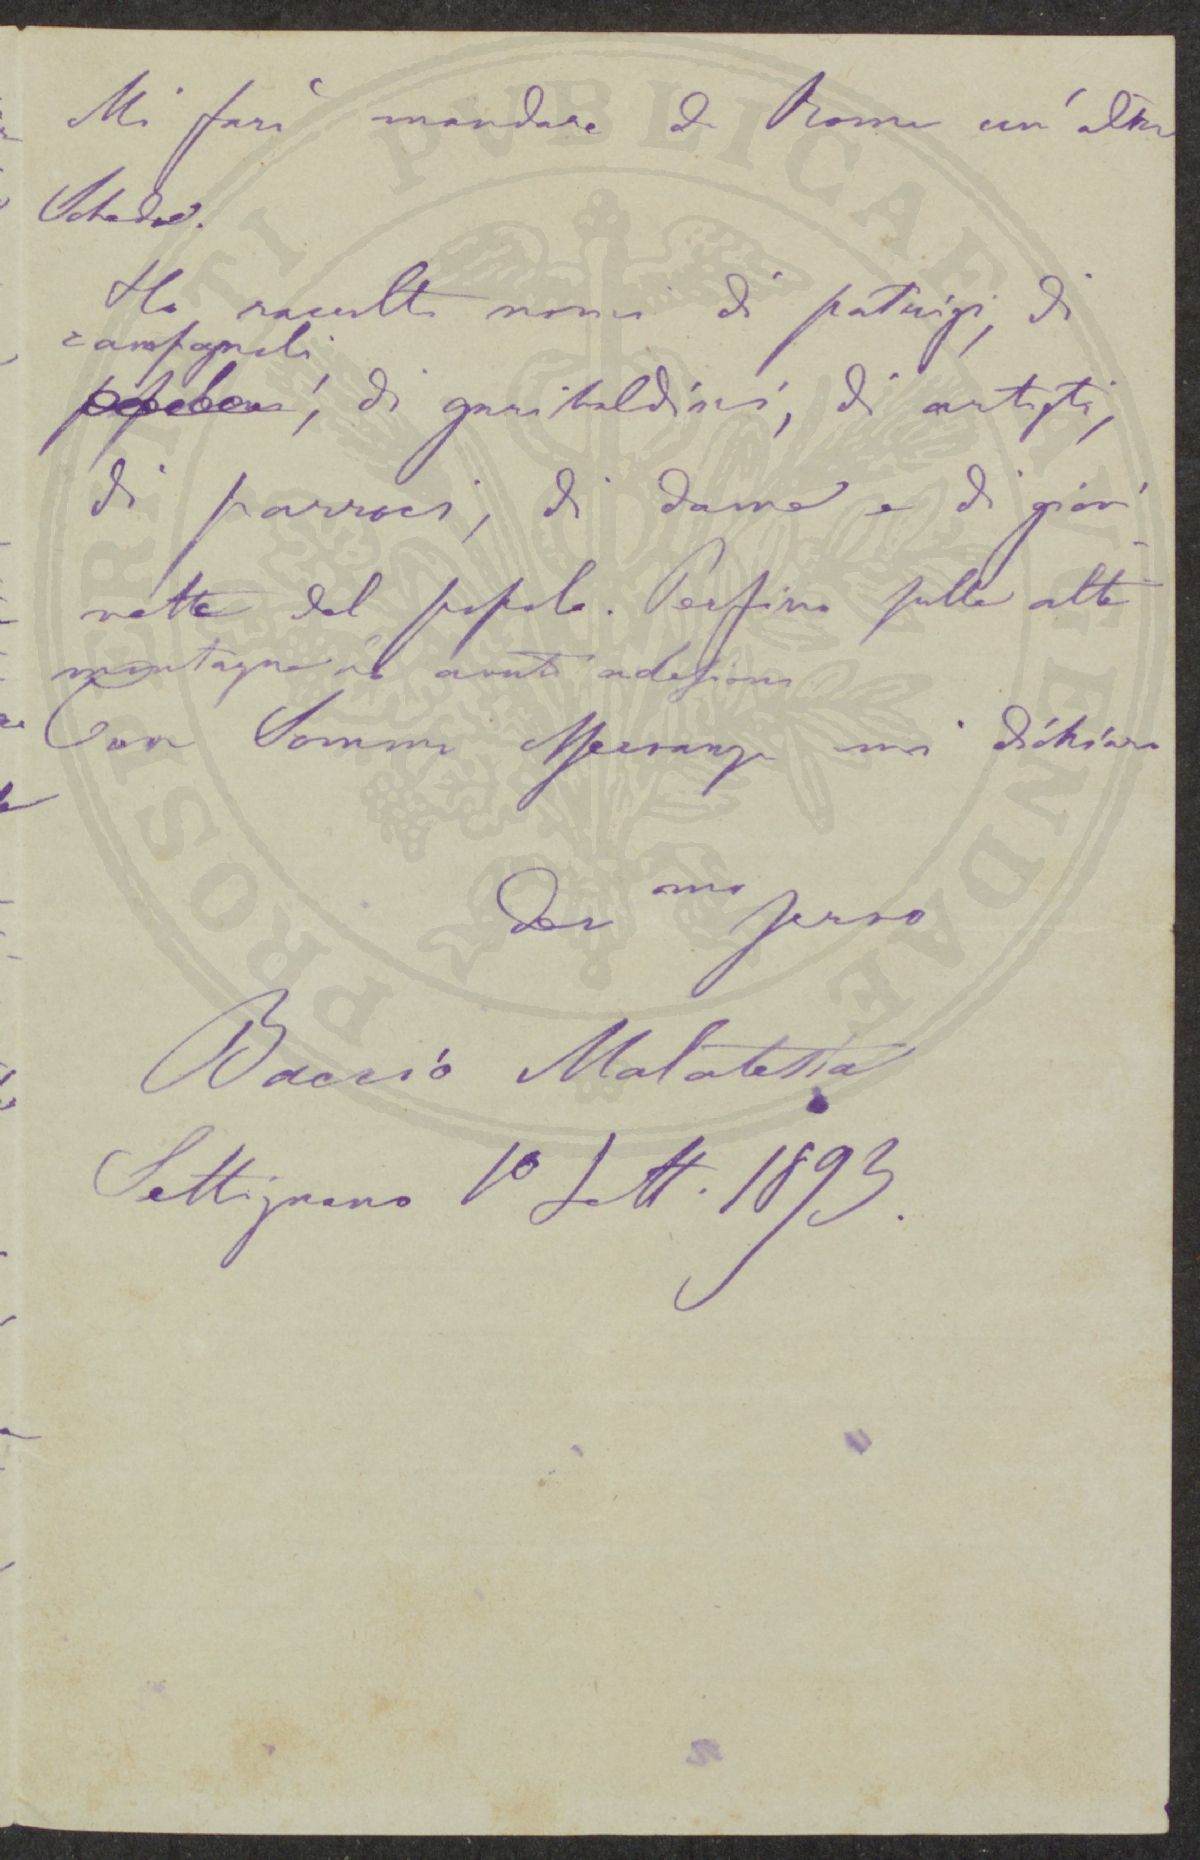 Mi farò mandare da Roma un'altra
Scheda.
Ho raccolto nomi di patrizi, di
campagnoli
popolani, di garibaldini, di artisti,
di parroci, di dame e di giovi
nette del popolo. Perfino sulle alte
montagne ò avuto adesioni
Con Somma Osservanza mi dichiaro
Dev omo servo
Baccio Malatesta
Settignano 1º Sett. 1893.
PROSPERITATI PVBLICAE AVGENDAE